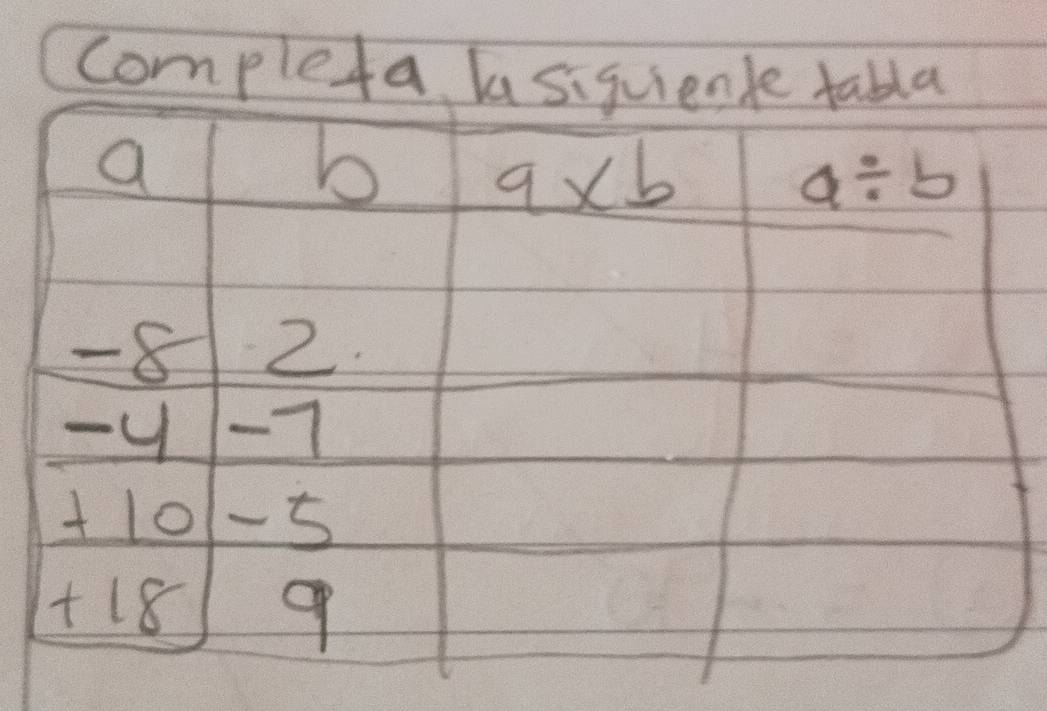 Completa la siguiente tabla
a b a×b a÷b
-8 -2
-4 -7
+10 -5
+18 9